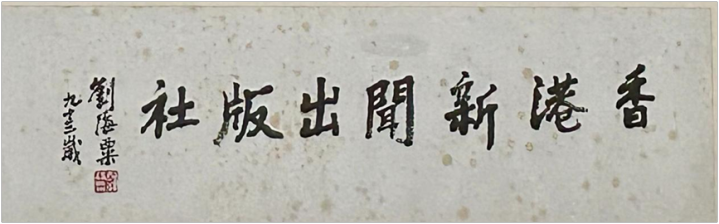 香港新聞出版社
劉海粟
九十三歲